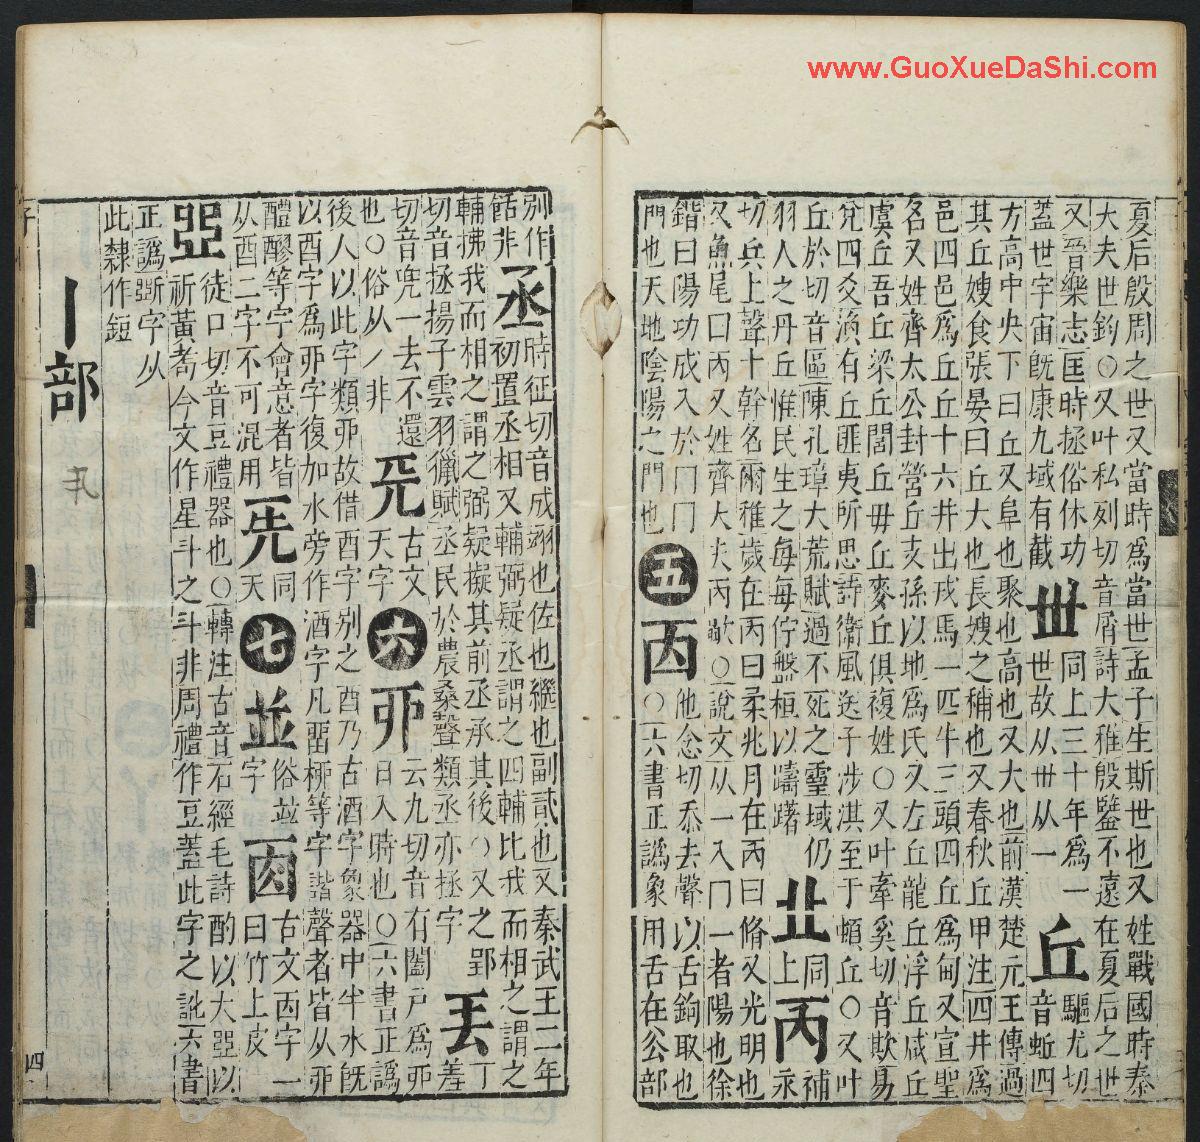 夏后殷周之世又當時爲當世孟子生斯世也又姓戰國時秦
大夫世鈞○又叶私列切音屑詩大雅殷鑒不遠在夏后之世
又晉樂志匡時拯俗休功
蓋世宇宙旣康九域有截
丗
同上三十年爲一
世故从卅从一
丘
驅尤切
音蚯四
方高中央下曰丘又阜也聚也高也又大也前漢楚元王傳過
其丘嫂食張晏曰丘大也長嫂之稱也又春秋丘甲注四井爲
邑四邑爲丘丘十六井出戎馬一匹牛三頭四丘爲甸又宣聖
名又姓齊太公封營丘支孫以地爲氏又左丘龍丘浮丘咸丘
虞丘吾丘梁丘閭丘毋丘麥丘俱複姓○又叶牽奚切音欺易
兌四爻渙有丘匪夷所思詩衛風送子涉淇至于頓丘○又叶
丘於切音區陳孔璋大荒賦過不死之靈域仍
羽人之丹丘惟民生之每每佇盤桓以躊躇
㐀
同上
丙
補
永
切兵上聲十幹名爾雅歲在丙曰柔兆月在丙曰脩又光明也
又魚尾曰丙又姓齊大夫丙歜○說文从一入冂一者陽也徐
鍇曰陽功成入於冂冂
門也天地陰陽之門也
五
㐁
他念切忝去聲以舌鉤取也
○六書正譌象用舌在公部
別作
餂非
丞
時征切音成翊也佐也繼也副貳也又秦武王二年
初置丞相又輔弼疑丞謂之四輔比我而相之謂之
輔拂我而相之謂之弼疑擬其前丞承其後○又之郢
切音拯揚子雲羽獵賦丞民於農桑聲類丞亦拯字
丟
丁
羞
切音兜一去不還
也○俗从丿非
古文
天字
六
丣
云九切音有闔戶爲丣
日入時也○六書正譌
後人以此字類丣故借酉字别之酉乃古酒字象器中半水旣
以酉字爲丣字復加水旁作酒字凡畱桺等字諧聲者皆从丣
醴醪等字會意者皆
从酉二字不可混用
同
天
七
並
俗竝
字
古文㐁字一
曰竹上皮
徒口切音豆禮器也○轉注古音石經毛詩酌以大以
祈黃耉今文作星斗之斗非周禮作豆蓋此字之訛六書
正譌斲字从
此隸作短
丨部
四
www.GuoXueDaShi.com